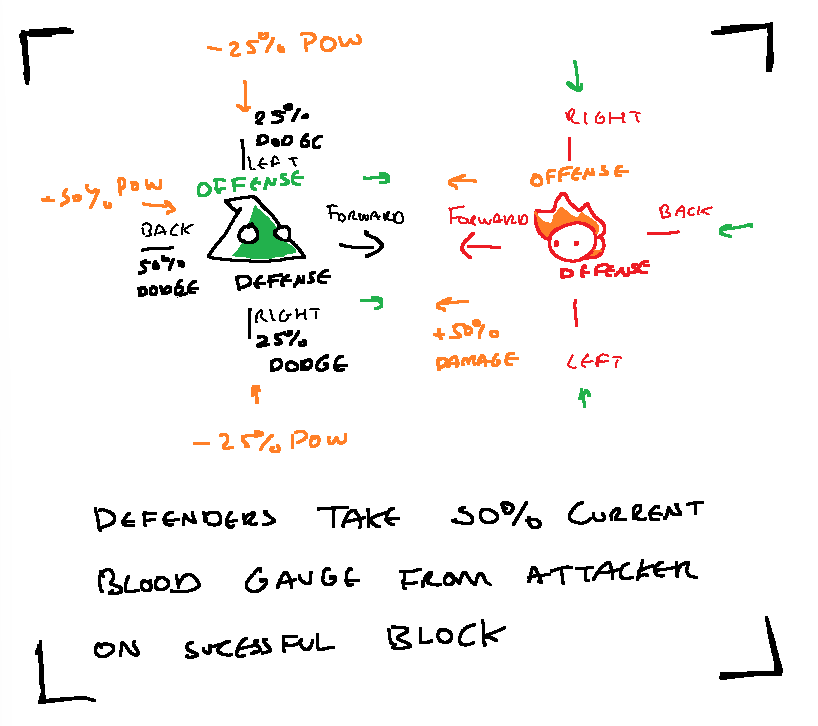 -25% POW
25%
DODGE
LEFT
OFFENSE
-50% POW
BACK
50%
DODGE
DEFENSE
FORWARD
RIGHT
25%
DODGE
-25% POW
RIGHT
OFFENSE
FORWARD
BACK
DEFENSE
+50%
DAMAGE
LEFT
DEFENDERS TAKE 50% CURRENT
BLOOD GAUGE FROM ATTACKER
ON SUCESSFUL BLOCK